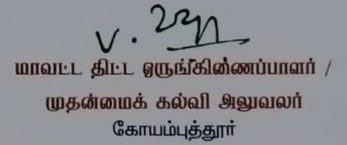 மாவட்ட திட்ட ஒருங்கிணைப்பாளர் /
முதன்மைக் கல்வி அலுவலர்
கோயம்புத்தூர்